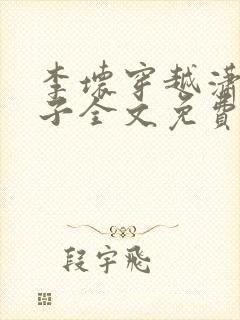 李壞穿越瀟
子全文免費
段宇飛